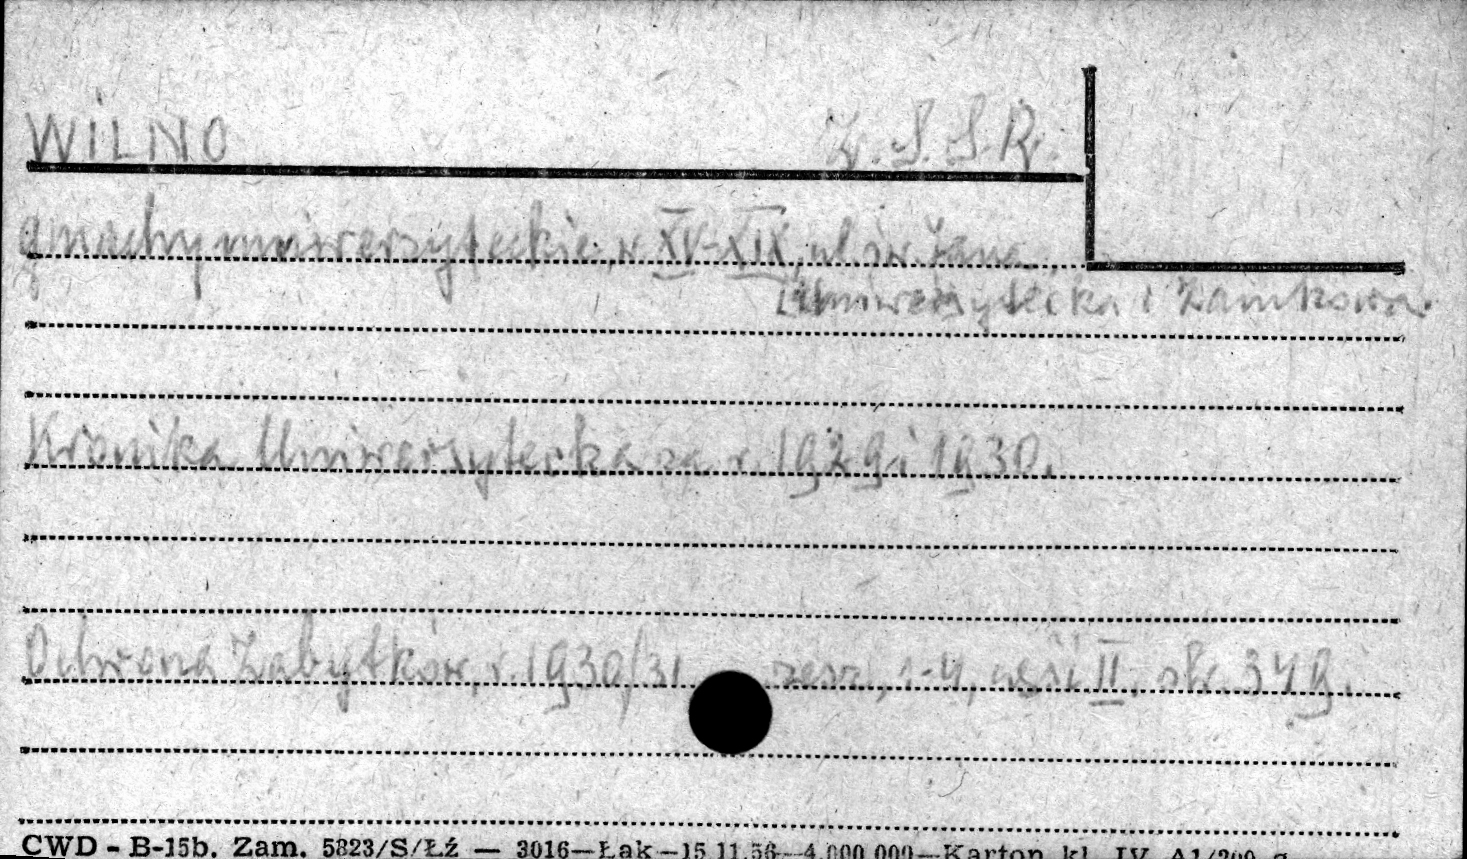 WILNO Z.S.S.R.
gmachy uniwersyteckie, w XV-XIX, ul. św. Jana,
Uniwersytecka i Zamkowa.
Kronika Uniwersytecka za r. 1929 i 1930.
Ochrona Zabytków, r. 1930/31 zesz. 1-4, część II, str. 349.
CWD - B-15b. Zam. 5823/S/Łź — 3016—Łąk—15.11.56—4.000.000—Karton kl. IV. A1/200 g